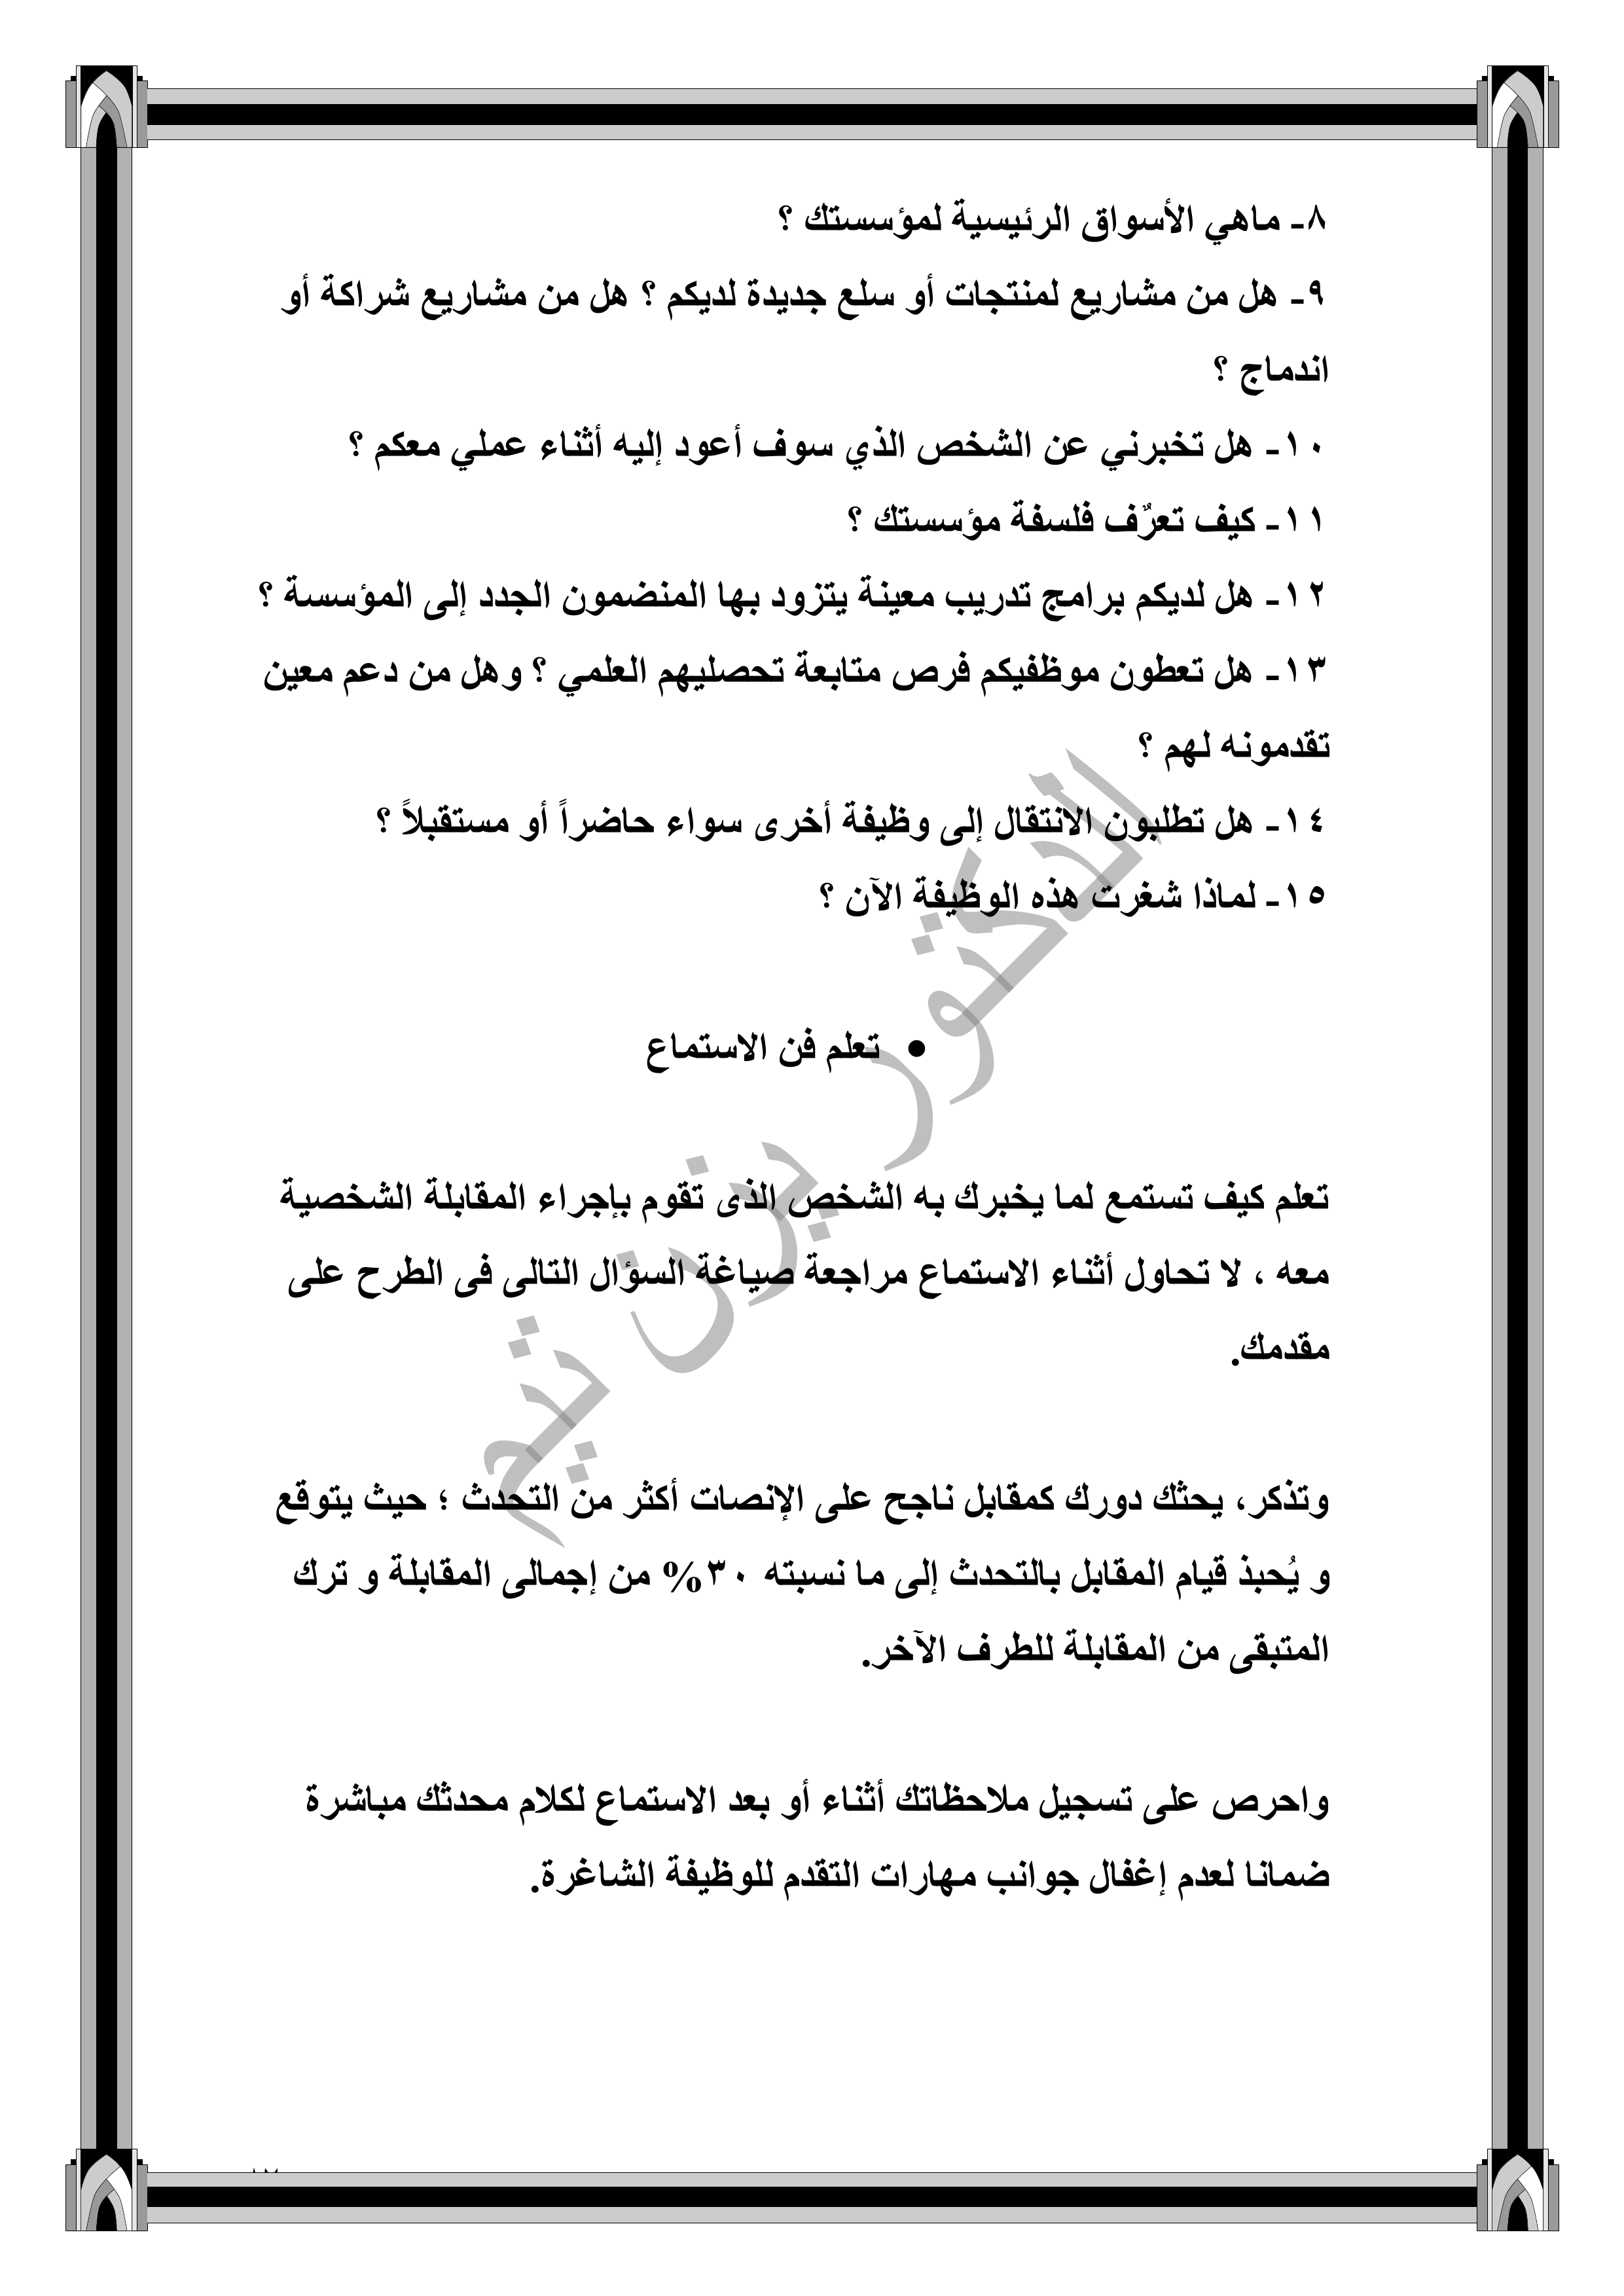 ٨- ماهي الأسواق الرئيسية لمؤسستك ؟
٩- هل من مشاريع لمنتجات أو سلع جديدة لديكم ؟ هل من مشاريع شراكة أو
اندماج ؟
١٠- هل تخبرني عن الشخص الذي سوف أعود إليه أثناء عملي معكم ؟
١١- كيف تعرٌف فلسفة مؤسستك ؟
١٢- هل لديكم برامج تدريب معينة يتزود بها المنضمون الجدد إلى المؤسسة ؟
١٣- هل تعطون موظفيكم فرص متابعة تحصليهم العلمي ؟ وهل من دعم معين
تقدمونه لهم ؟
١٤- هل تطلبون الانتقال إلى وظيفة أخرى سواء حاضراً أو مستقبلاً ؟
١٥- لماذا شغرت هذه الوظيفة الآن ؟
• تعلم فن الاستماع
تعلم كيف تستمع لما يخبرك به الشخص الذى تقوم بإجراء المقابلة الشخصية
معه ، لا تحاول أثناء الاستماع مراجعة صياغة السؤال التالى فى الطرح على
مقدمك.
وتذكر، يحثك دورك كمقابل ناجح على الإنصات أكثر من التحدث ؛ حيث يتوقع
و يُحبذ قيام المقابل بالتحدث إلى ما نسبته ٣٠% من إجمالى المقابلة و ترك
المتبقى من المقابلة للطرف الآخر.
واحرص على تسجيل ملاحظاتك أثناء أو بعد الاستماع لكلام محدثك مباشرة
ضمانا لعدم إغفال جوانب مهارات التقدم للوظيفة الشاغرة.
الدكتور